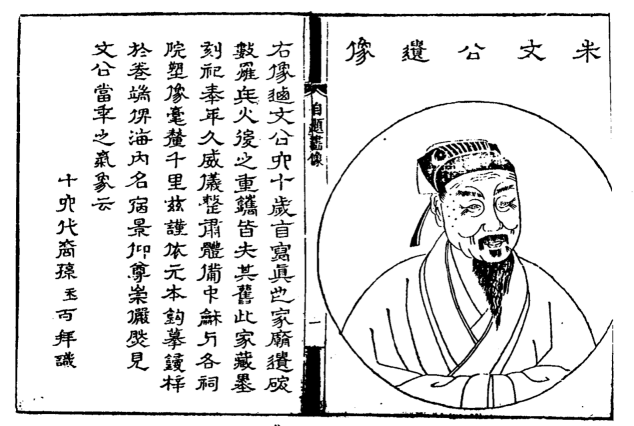 朱文公遺像
自題畫像
一
右像迺文公六十歲自寫真也家廟遺碑
數罹兵火後之重鐫皆失其舊此家藏墨
刻祀奉年久威儀整肅體備中龢与各祠
院塑像毫釐千里茲謹依元本鈎摹鋟梓
於卷端俾海內名宿景仰尊崇儼然見
文公當年之氣象云
十六代裔孫玉百拜識